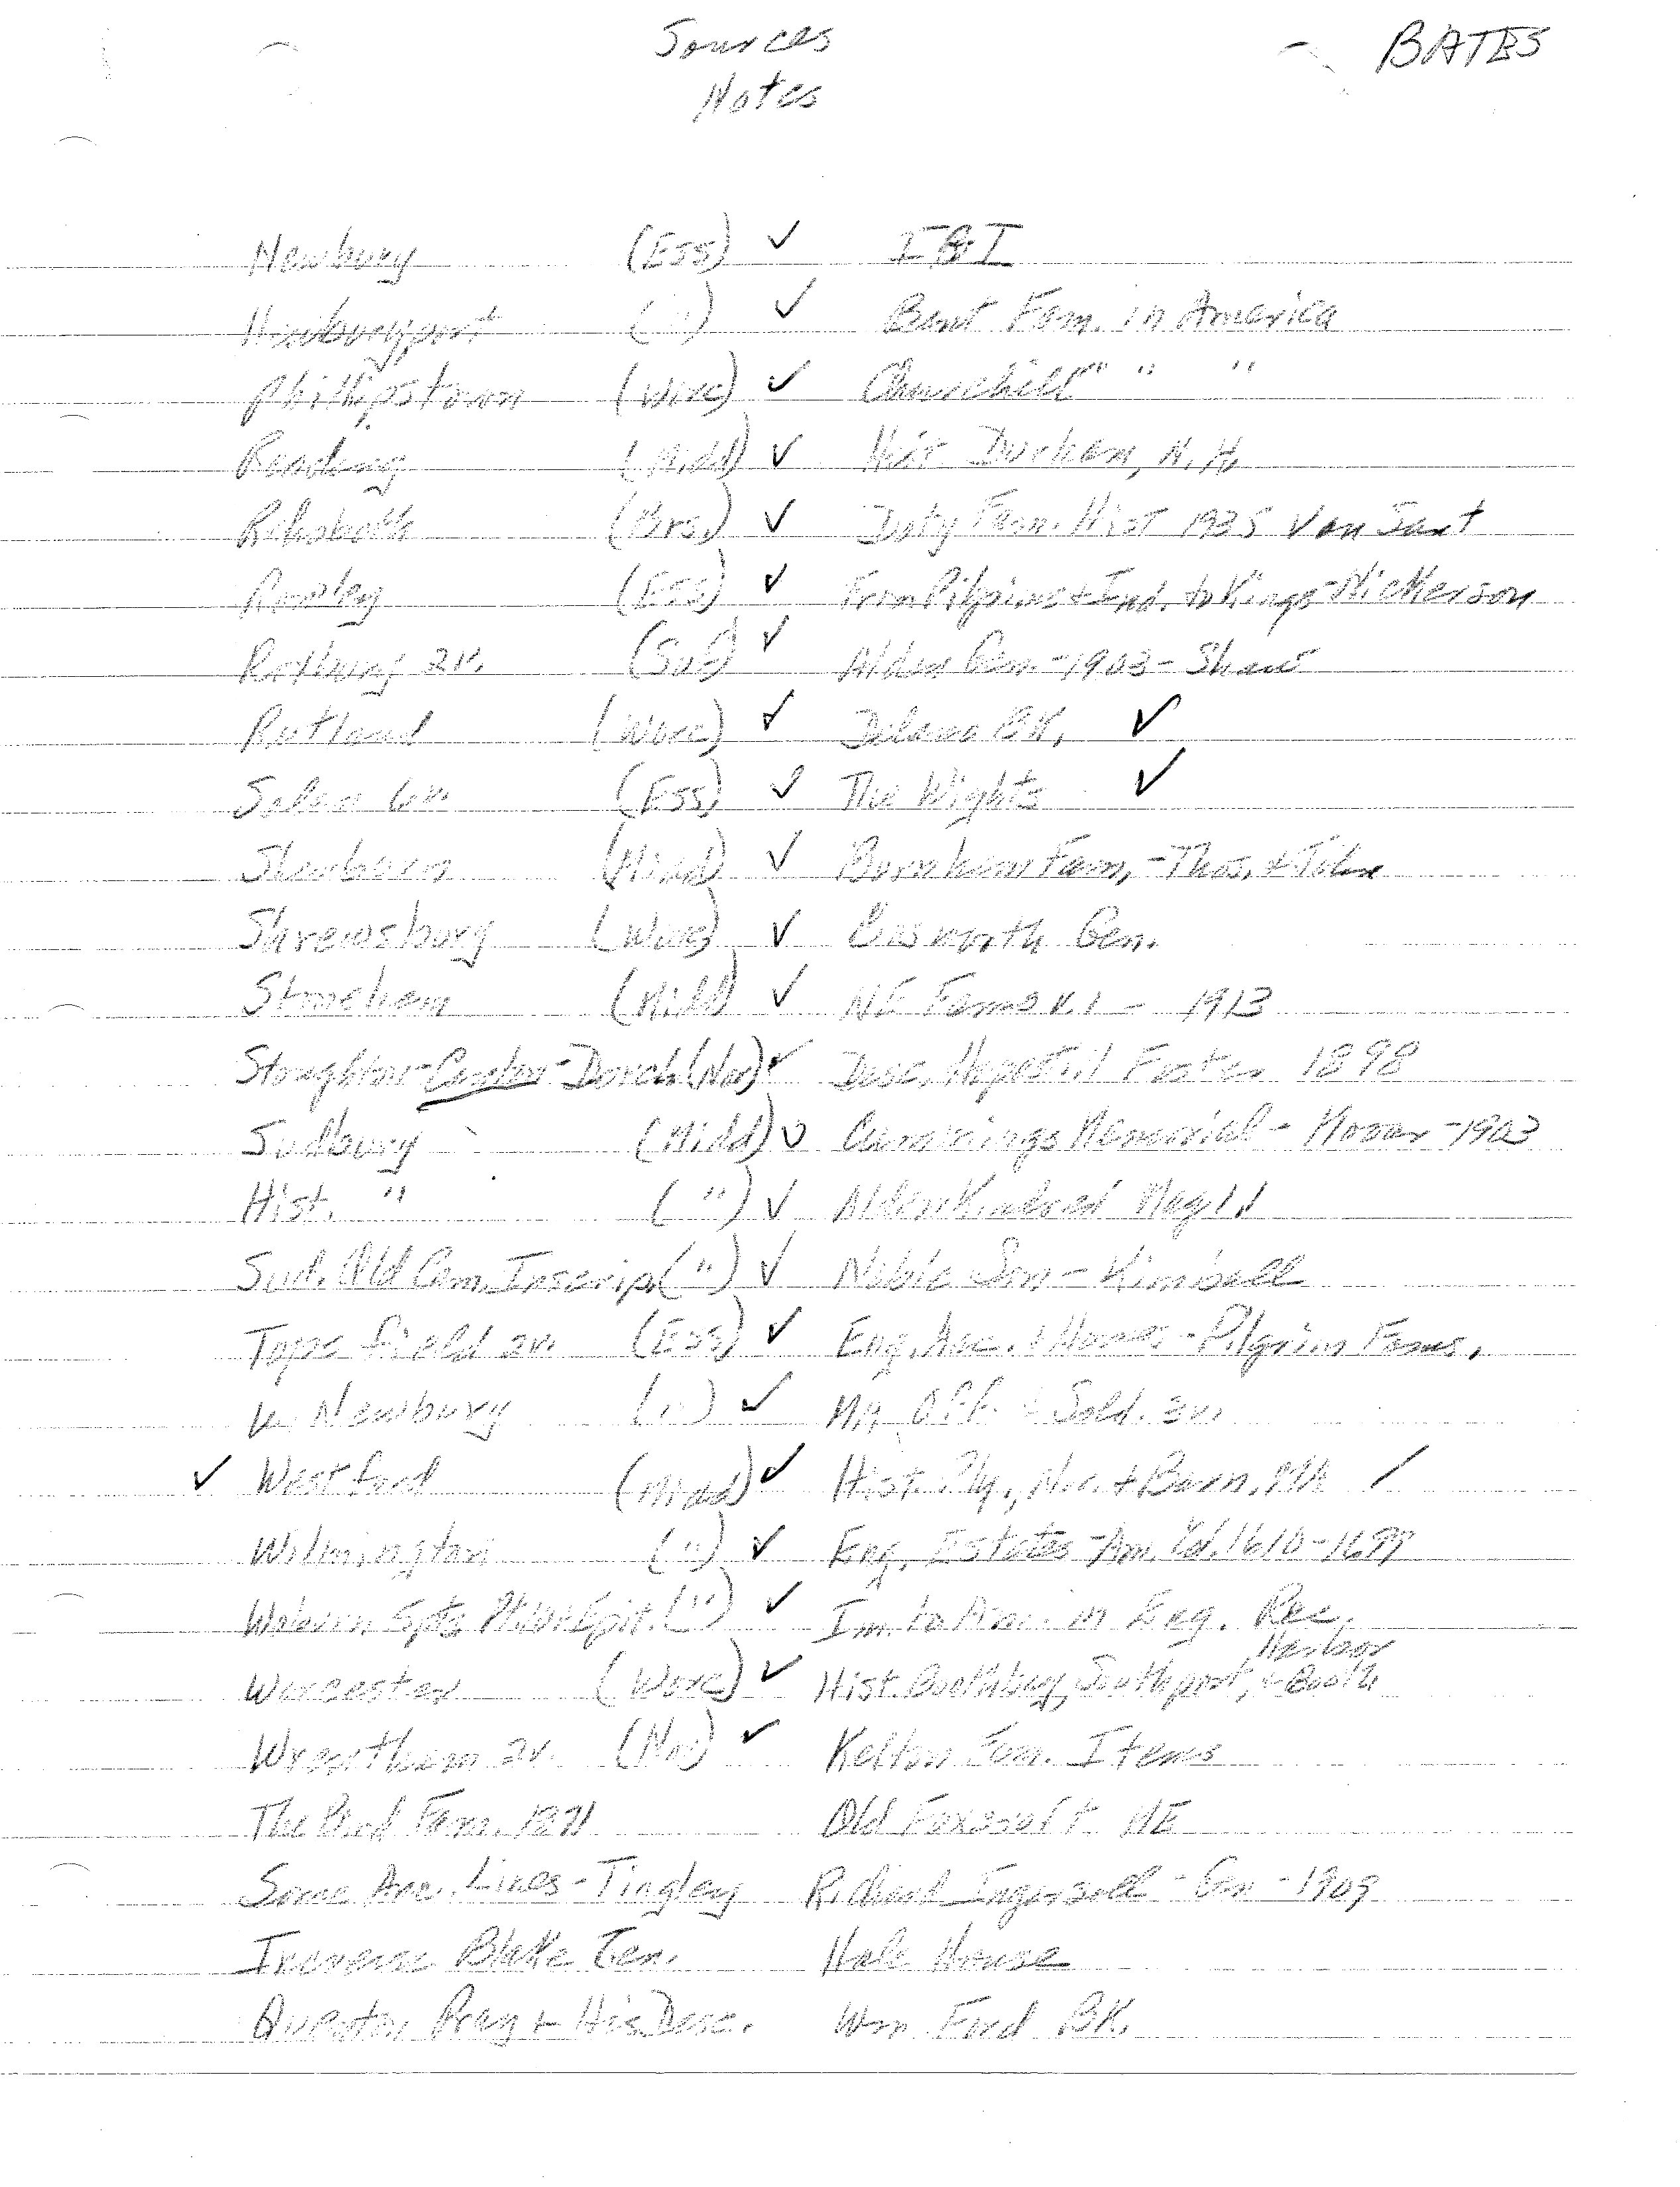 Sources BATES
Notes
Newbury (Ess) ✓ I & I
Newburyport (") ✓ Bent Fam. in America
Phillipstown (Worc) ✓ Churchill " " "
Reading (Midd) ✓ Hist. Durham, N.H.
Rehoboth (Brs.) ✓ Doty Fam. Hist 1935 Van Sant
Rowley (Ess) ✓ From Pilgrims + Ind. to Kings - Nickerson
Roxbury 2v. (Suf) ✓ Alden Gen. - 1903 - Shaw
Rutland (Worc) ✓ Delano BK. ✓
Salem 6v. (Ess) ✓ The Wights ✓
Sherborn (Midd) ✓ Burnham Fam, - Thos. + John
Shrewsbury (Worc) ✓ Bosworth Gen.
Stoneham (Midd) ✓ NE Fams v.1 - 1913
Stoughton - Canton - Dorch (Nor) ✓ Desc. Hopestill Foster 1898
Sudbury (Midd) ✓ Cummings Memorial - 1903
Hist. " (") ✓ Alden Kindred Mag
Sud. Old Cem. Inscrip. (") ✓ Noble Son - Kimball
Topsfield 2v. (Ess) ✓ Eng. Anc. + Homes - Pilgrim Fams.
W. Newbury (") ✓ MA Off. + Sold. 3v.
✓ Westford (Midd) ✓ Hist. Ply., Nor. + Barn. MA ✓
Wilmington (") ✓ Eng. Estates - Am. Col. 1610-1699
Woburn Epit. (") ✓ Im. to Am. in Eng. Rec.
Worcester (Worc) ✓ Hist. Boothbay, Southport, + Booth. Harbor
Wrentham 2v. (Nor) ✓ Kelton Fam. Items
The Bird Fam. 1871 Old Foxcroft ME
Some Anc. Lines - Tingley Richard Ingersoll - Gen - 1909
Increase Blake Gen. Hale House
Quentin Pray + His Desc. Wm Ford BK.